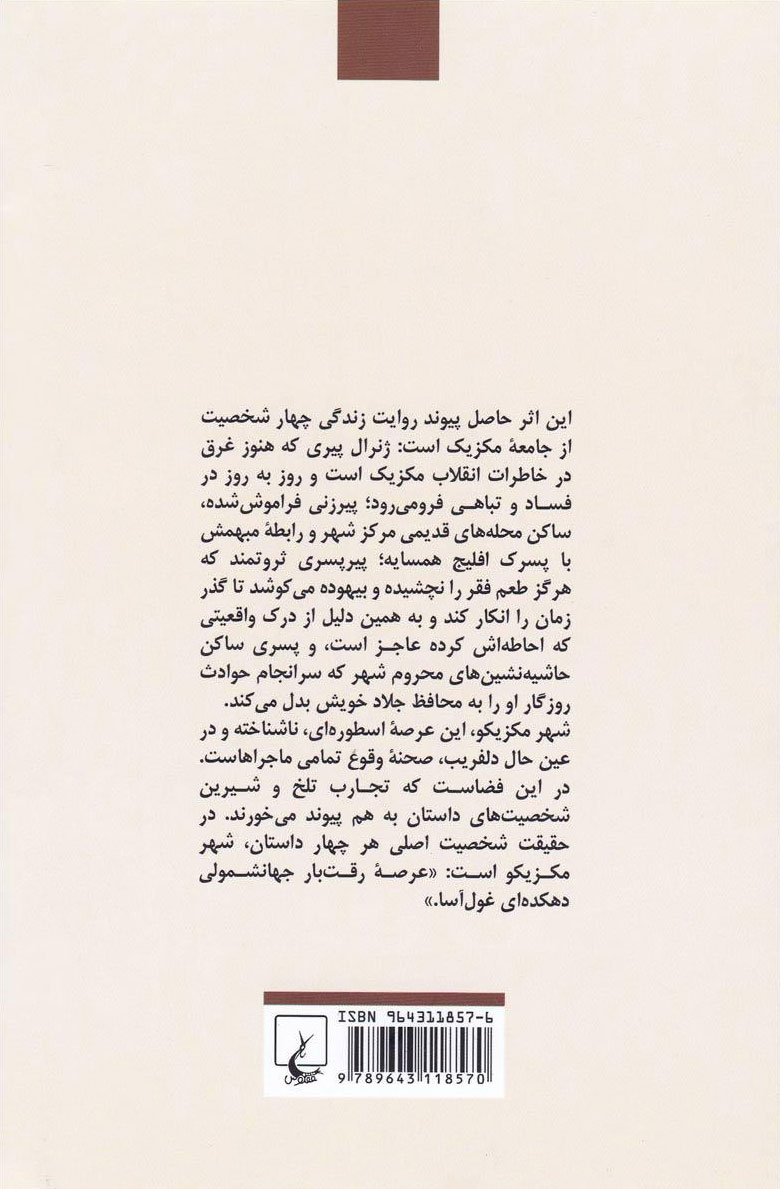 این اثر حاصل پیوند روایت زندگی چهار شخصیت
از جامعهٔ مکزیک است: ژنرال پیری که هنوز غرق
در خاطرات انقلاب مکزیک است و روز به روز در
فساد و تباهی فرومی‌رود؛ پیرزنی فراموش‌شده،
ساکن محله‌های قدیمی مرکز شهر و رابطهٔ مبهمش
با پسرک افلیج همسایه؛ پیرپسری ثروتمند که
هرگز طعم فقر را نچشیده و بیهوده می‌کوشد تا گذر
زمان را انکار کند و به همین دلیل از درک واقعیتی
که احاطه‌اش کرده عاجز است، و پسری ساکن
حاشیه‌نشین‌های محروم شهر که سرانجام حوادث
روزگار او را به محافظ جلاد خویش بدل می‌کند.
شهر مکزیکو، این عرصهٔ اسطوره‌ای، ناشناخته و در
عین حال دلفریب، صحنهٔ وقوع تمامی ماجراهاست.
در این فضاست که تجارب تلخ و شیرین
شخصیت‌های داستان به هم پیوند می‌خورند. در
حقیقت شخصیت اصلی هر چهار داستان، شهر
مکزیکو است: «عرصهٔ رقت‌بار جهانشمولی
دهکده‌ای غول‌آسا.»
ISBN 964311857-6
9 789643 118570
ققنوس